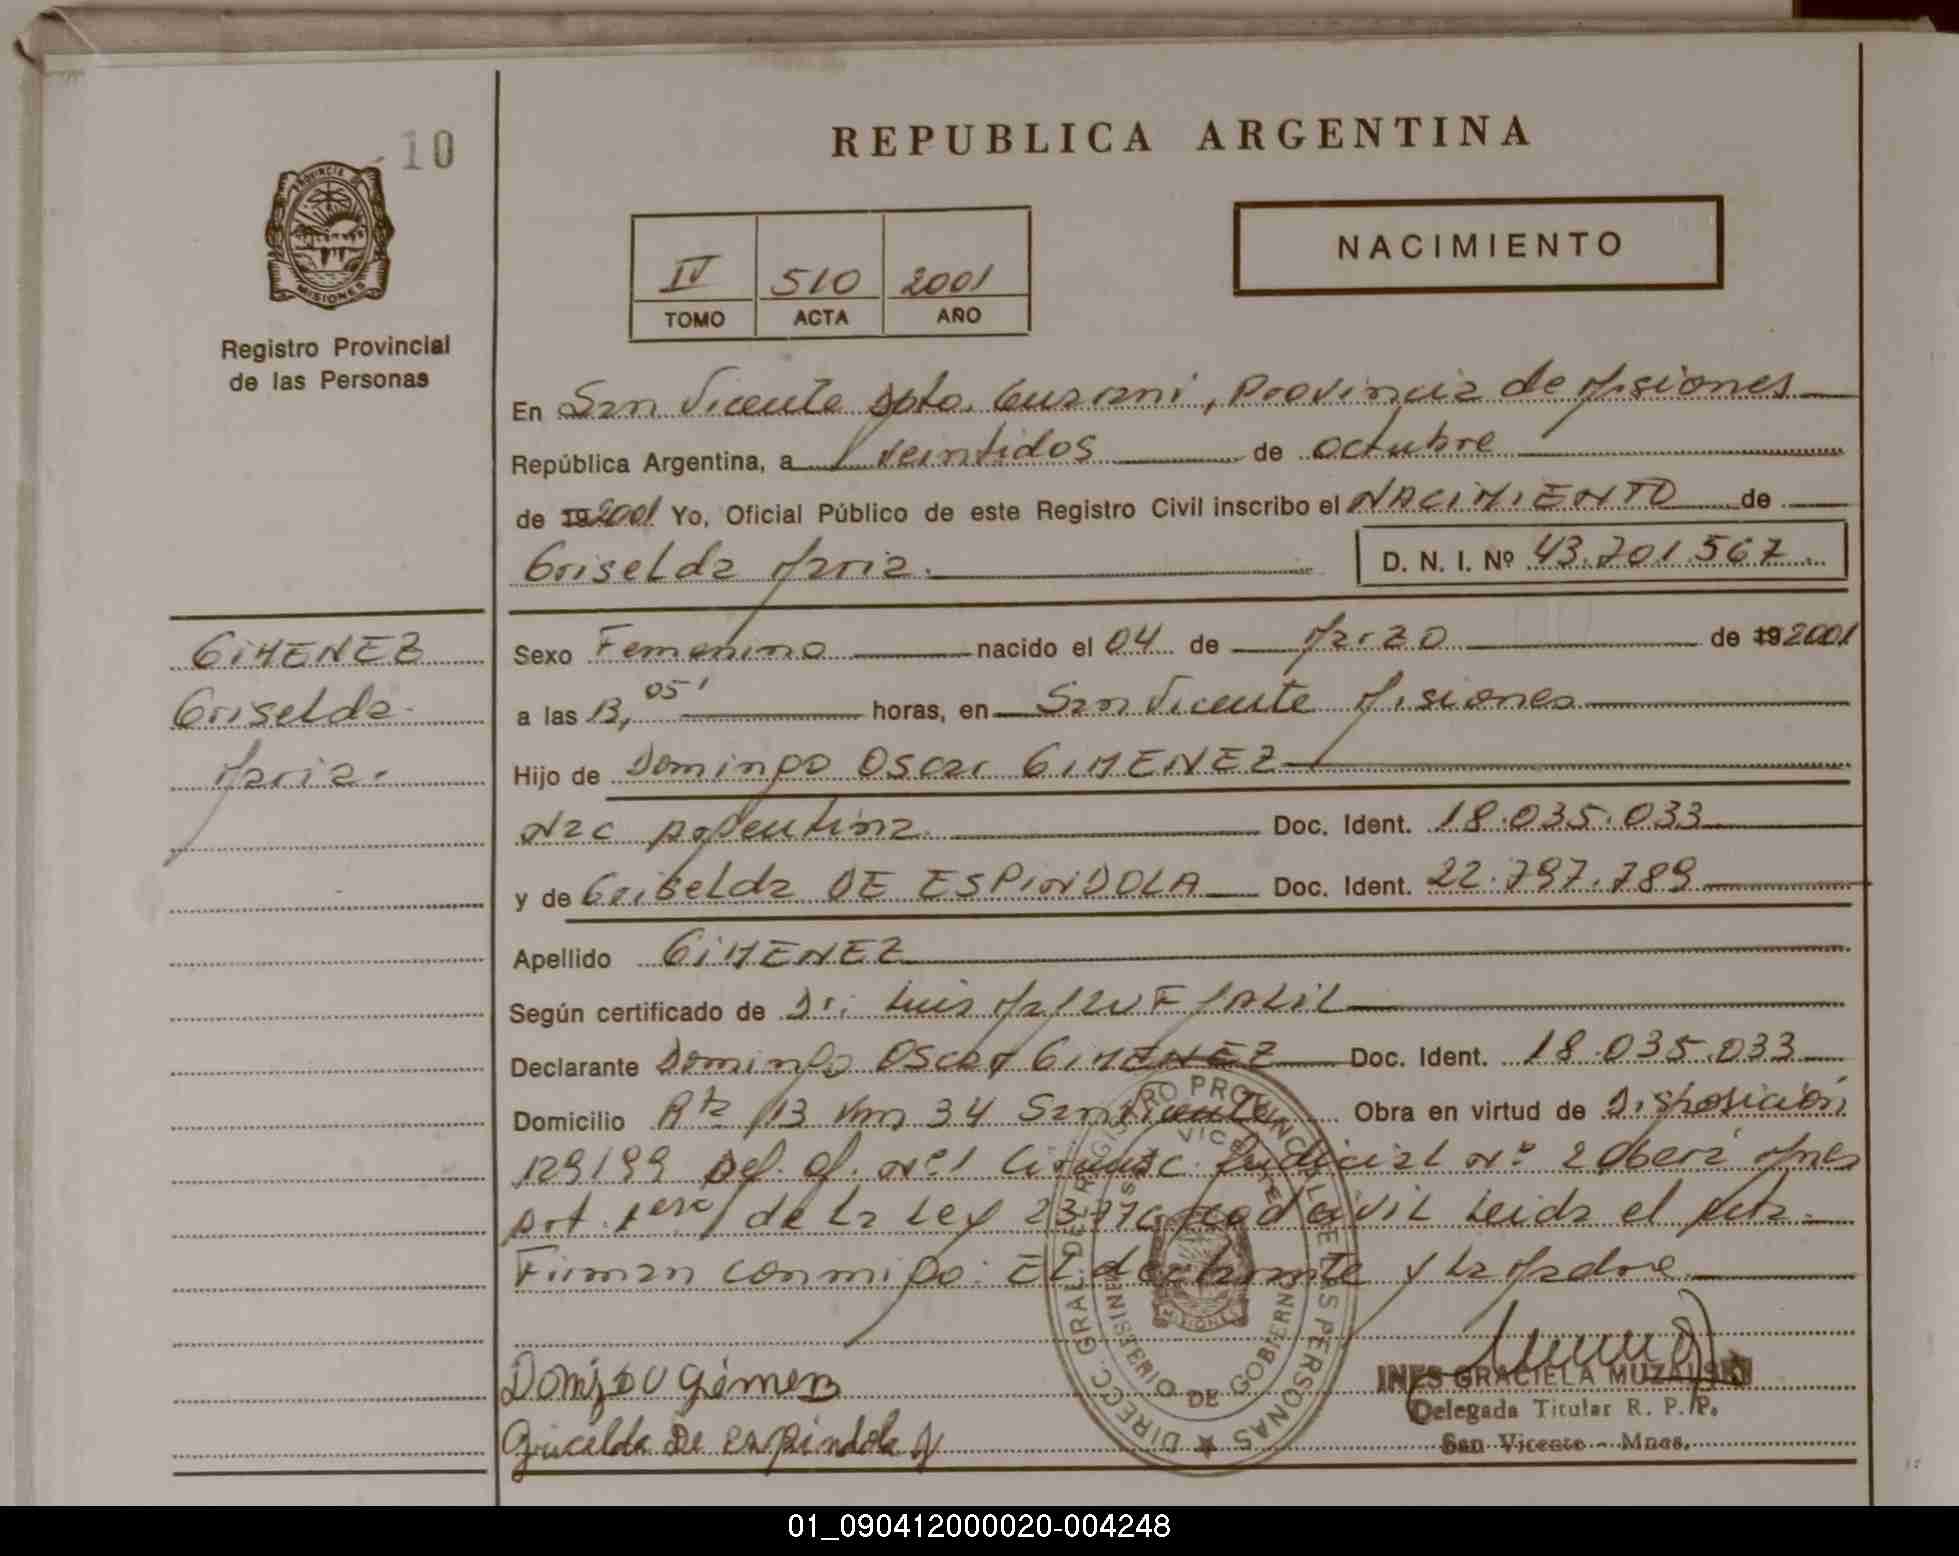 10
PROVINCIA DE
MISIONES
Registro Provincial
de las Personas
REPUBLICA ARGENTINA
NACIMIENTO
IV 510 2001
TOMO ACTA AÑO
En San Vicente Dpto. Guarani, Provincia de Misiones
República Argentina, a veintidos de octubre
de 192001 Yo, Oficial Público de este Registro Civil inscribo el NACIMIENTO de
Griselda Maria. D. N. I. Nº 43.701.567
GIMENEZ
Griselda
Maria.
Sexo Femenino nacido el 04 de Marzo de 192001
a las 13,05' horas, en San Vicente Misiones
Hijo de Domingo Oscar GIMENEZ
Nac Argentina Doc. Ident. 18.035.033
y de Griselda DE ESPINDOLA Doc. Ident. 22.797.789
Apellido GIMENEZ
Según certificado de Dr. Luis
Declarante Domingo Oscar GIMENEZ Doc. Ident. 18.035.033
Domicilio Rta 13 Km 34 San Vicente Obra en virtud de Disposición
129/99 Def. Of. Nº1 Circunsc. Judicial Nº 2 Oberá Mnes
Art. 1ero de la Ley Cod Civil Leida el Acta.
Firman conmigo: El declarante y la Madre
Domingo Gimenez
Griselda De Espindola
DIRECC. GRAL. DE REGISTRO PROVINCIAL DE LAS PERSONAS
SAN VICENTE
MINISTERIO DE GOBIERNO
MISIONES
INES GRACIELA MUZALSKI
Delegada Titular R. P. P.
San Vicente - Mnes.
01_090412000020-004248